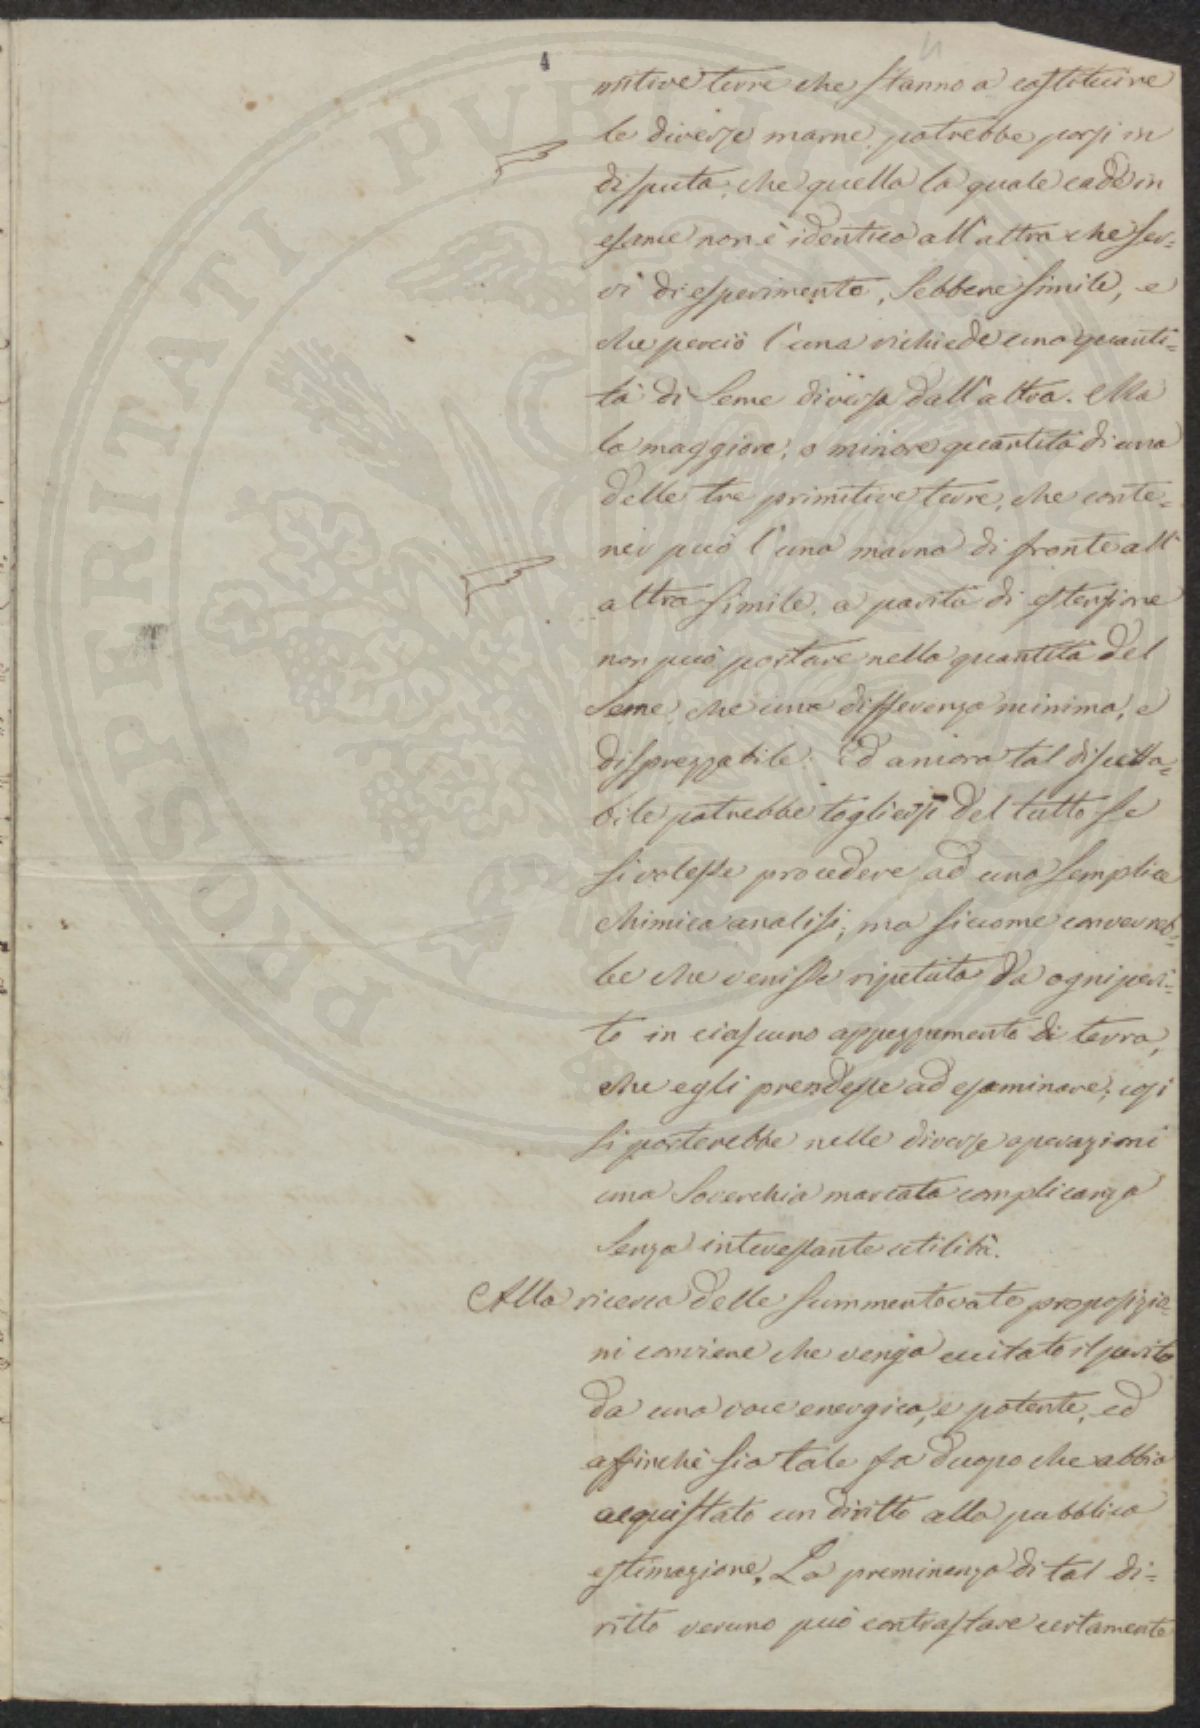 4
mitive terre che stanno a costituire
le diverse marne, potrebbe porsi in
disputa, che quella la quale cade in
esame non è identica all'altra che ser=
vì di esperimento, sebbene simile, e
che perciò l'una richiede una quanti=
tà di seme diversa dall'altra. Ma
la maggiore, o minore quantità di una
delle tre primitive terre, che conte=
ner può l'una marna di fronte all'
altra simile, a parità di estensione
non può portare nella quantità del
seme, che una differenza minima, e
disprezzabile. Ed ancora tal disputa=
bile potrebbe togliersi del tutto se
si volesse procedere ad una semplice
chimica analisi; ma siccome converreb=
be che venisse ripetuta da ogni peri=
to in ciascuno appezzamento di terra,
che egli prendesse ad esaminare; così
si porterebbe nelle diverse operazioni
una soverchia marcata complicanza
senza interessante utilità.
Alla ricerca delle summentovate proposizio=
ni conviene che venga eccitato il perito
da una voce energica, e potente, ed
affinchè sia tale fa d'uopo che abbia
acquistato un diritto alla pubblica
estimazione. La preminenza di tal di=
ritto veruno può contrastare certamente
PROSPERITATI PUBLICAE